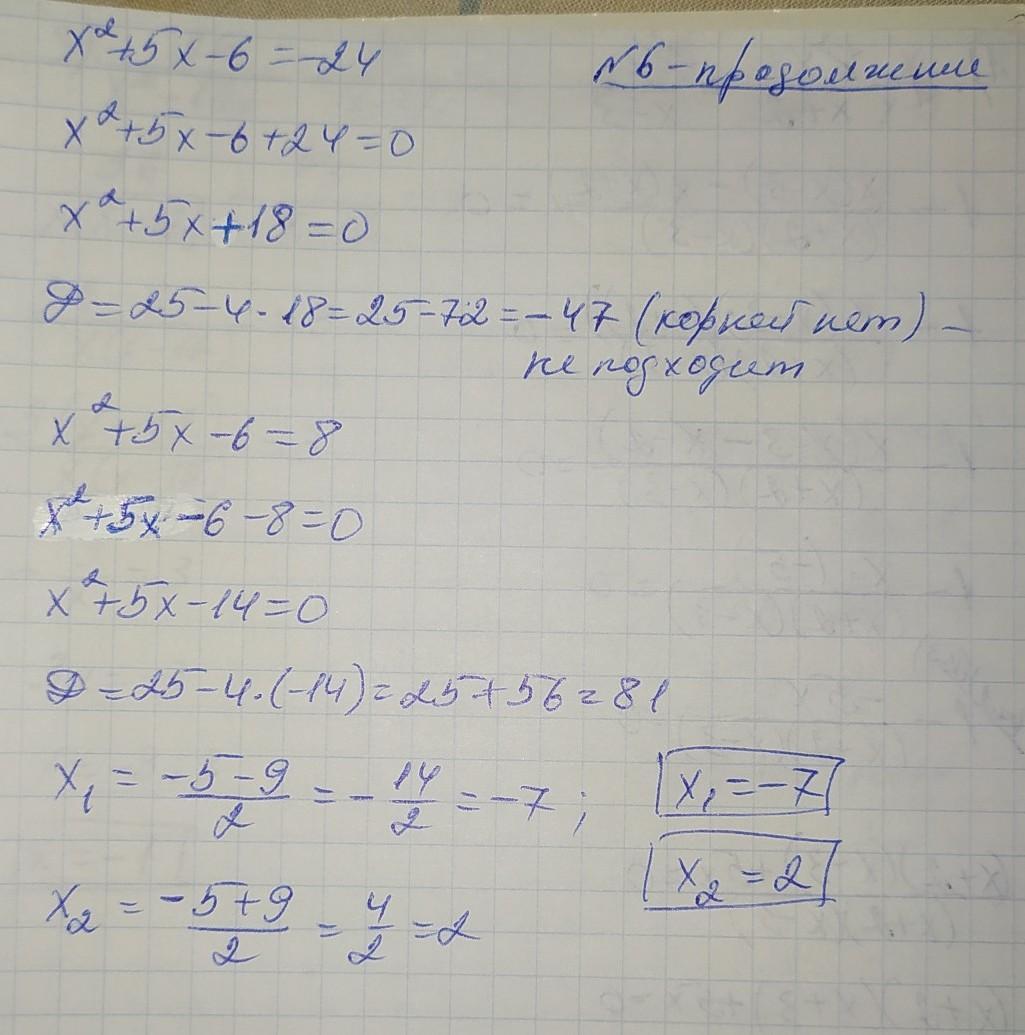 x²+5x-6=-24
№6-продолжение
x²+5x-6+24=0
x²+5x+18=0
D=25-4·18=25-72=-47 (корней нет) -
не подходит
x²+5x-6=8
x²+5x-6-8=0
x²+5x-14=0
D=25-4·(-14)=25+56=81
x₁ = (-5-9)/2 = -14/2 = -7;
x₁=-7
x₂=2
x₂ = (-5+9)/2 = 4/2 = 2